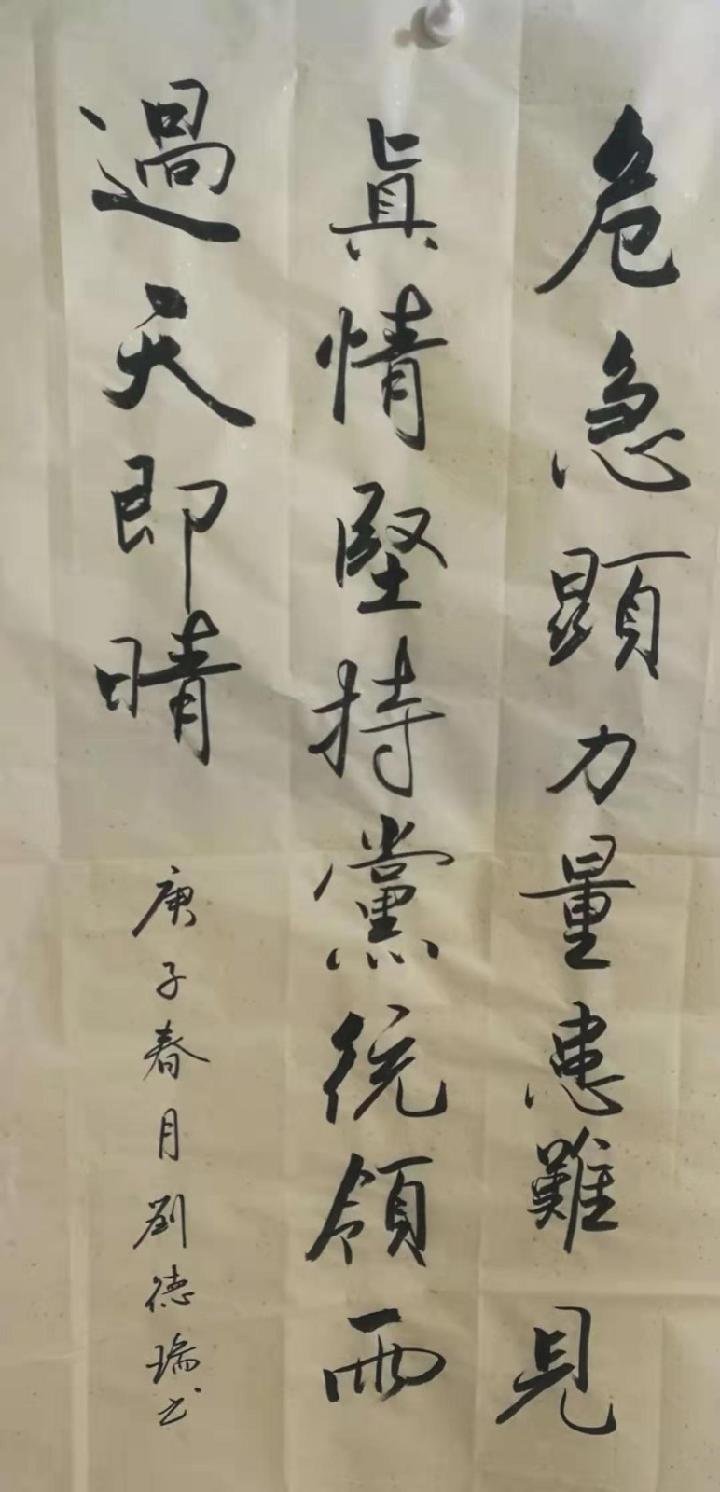 危急顯力量患難見
眞情堅持黨統領雨
過天即晴
庚子春月劉德瑞书